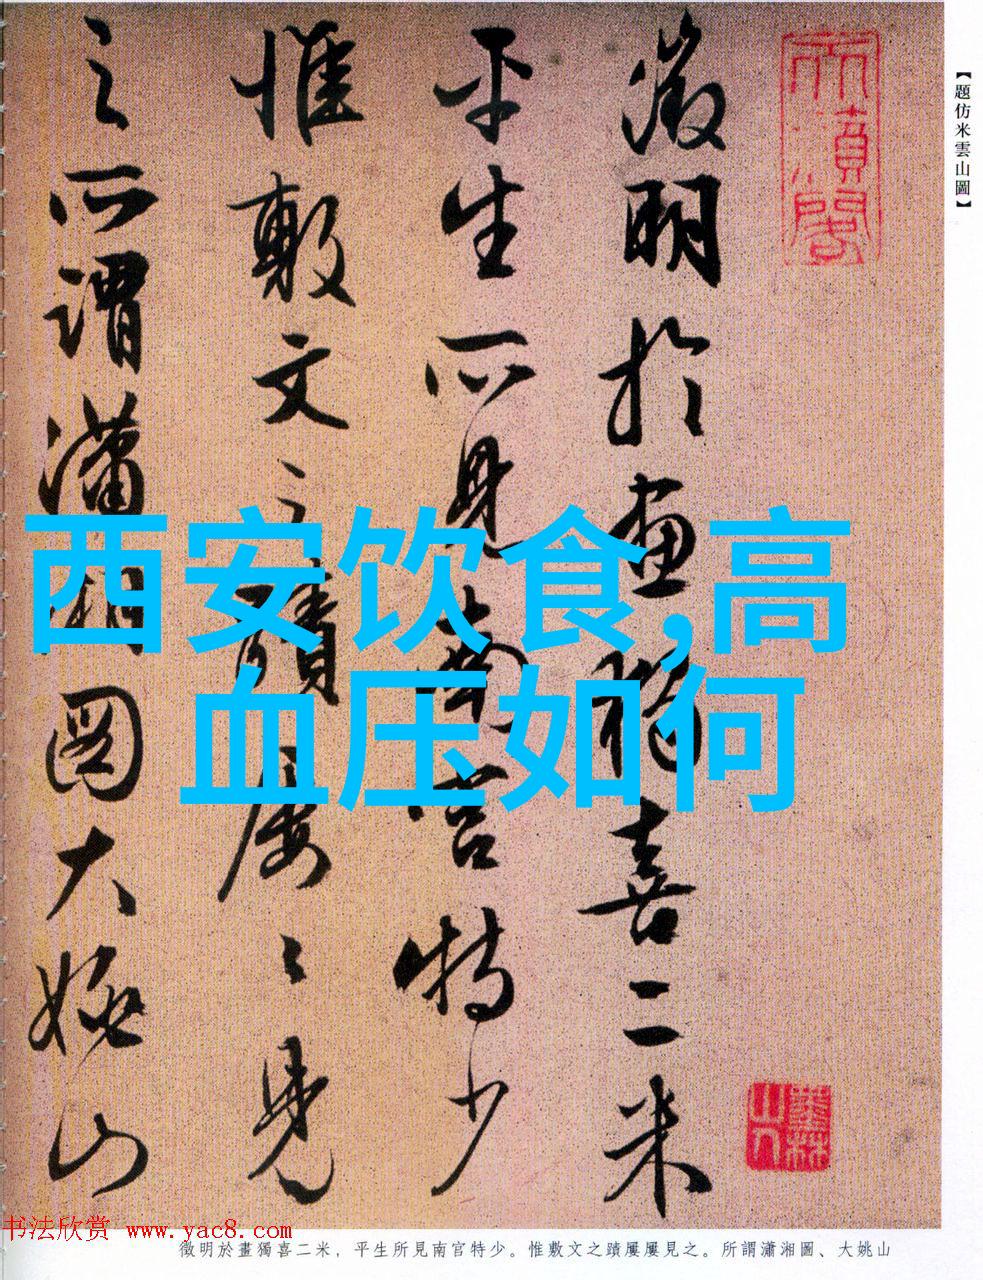 【題仿米雲山圖】
徵明於畫獨喜二米
平生所見南宮特少
惟敷文之蹟屢〻見
之所謂瀟湘圖大姚山
西安饮食,高
血压如何
书法欣赏 www.yac8.com
徵明於畫獨喜二米，平生所見南宮特少。惟敷文之蹟屢屢見之。所謂瀟湘圖、大姚山